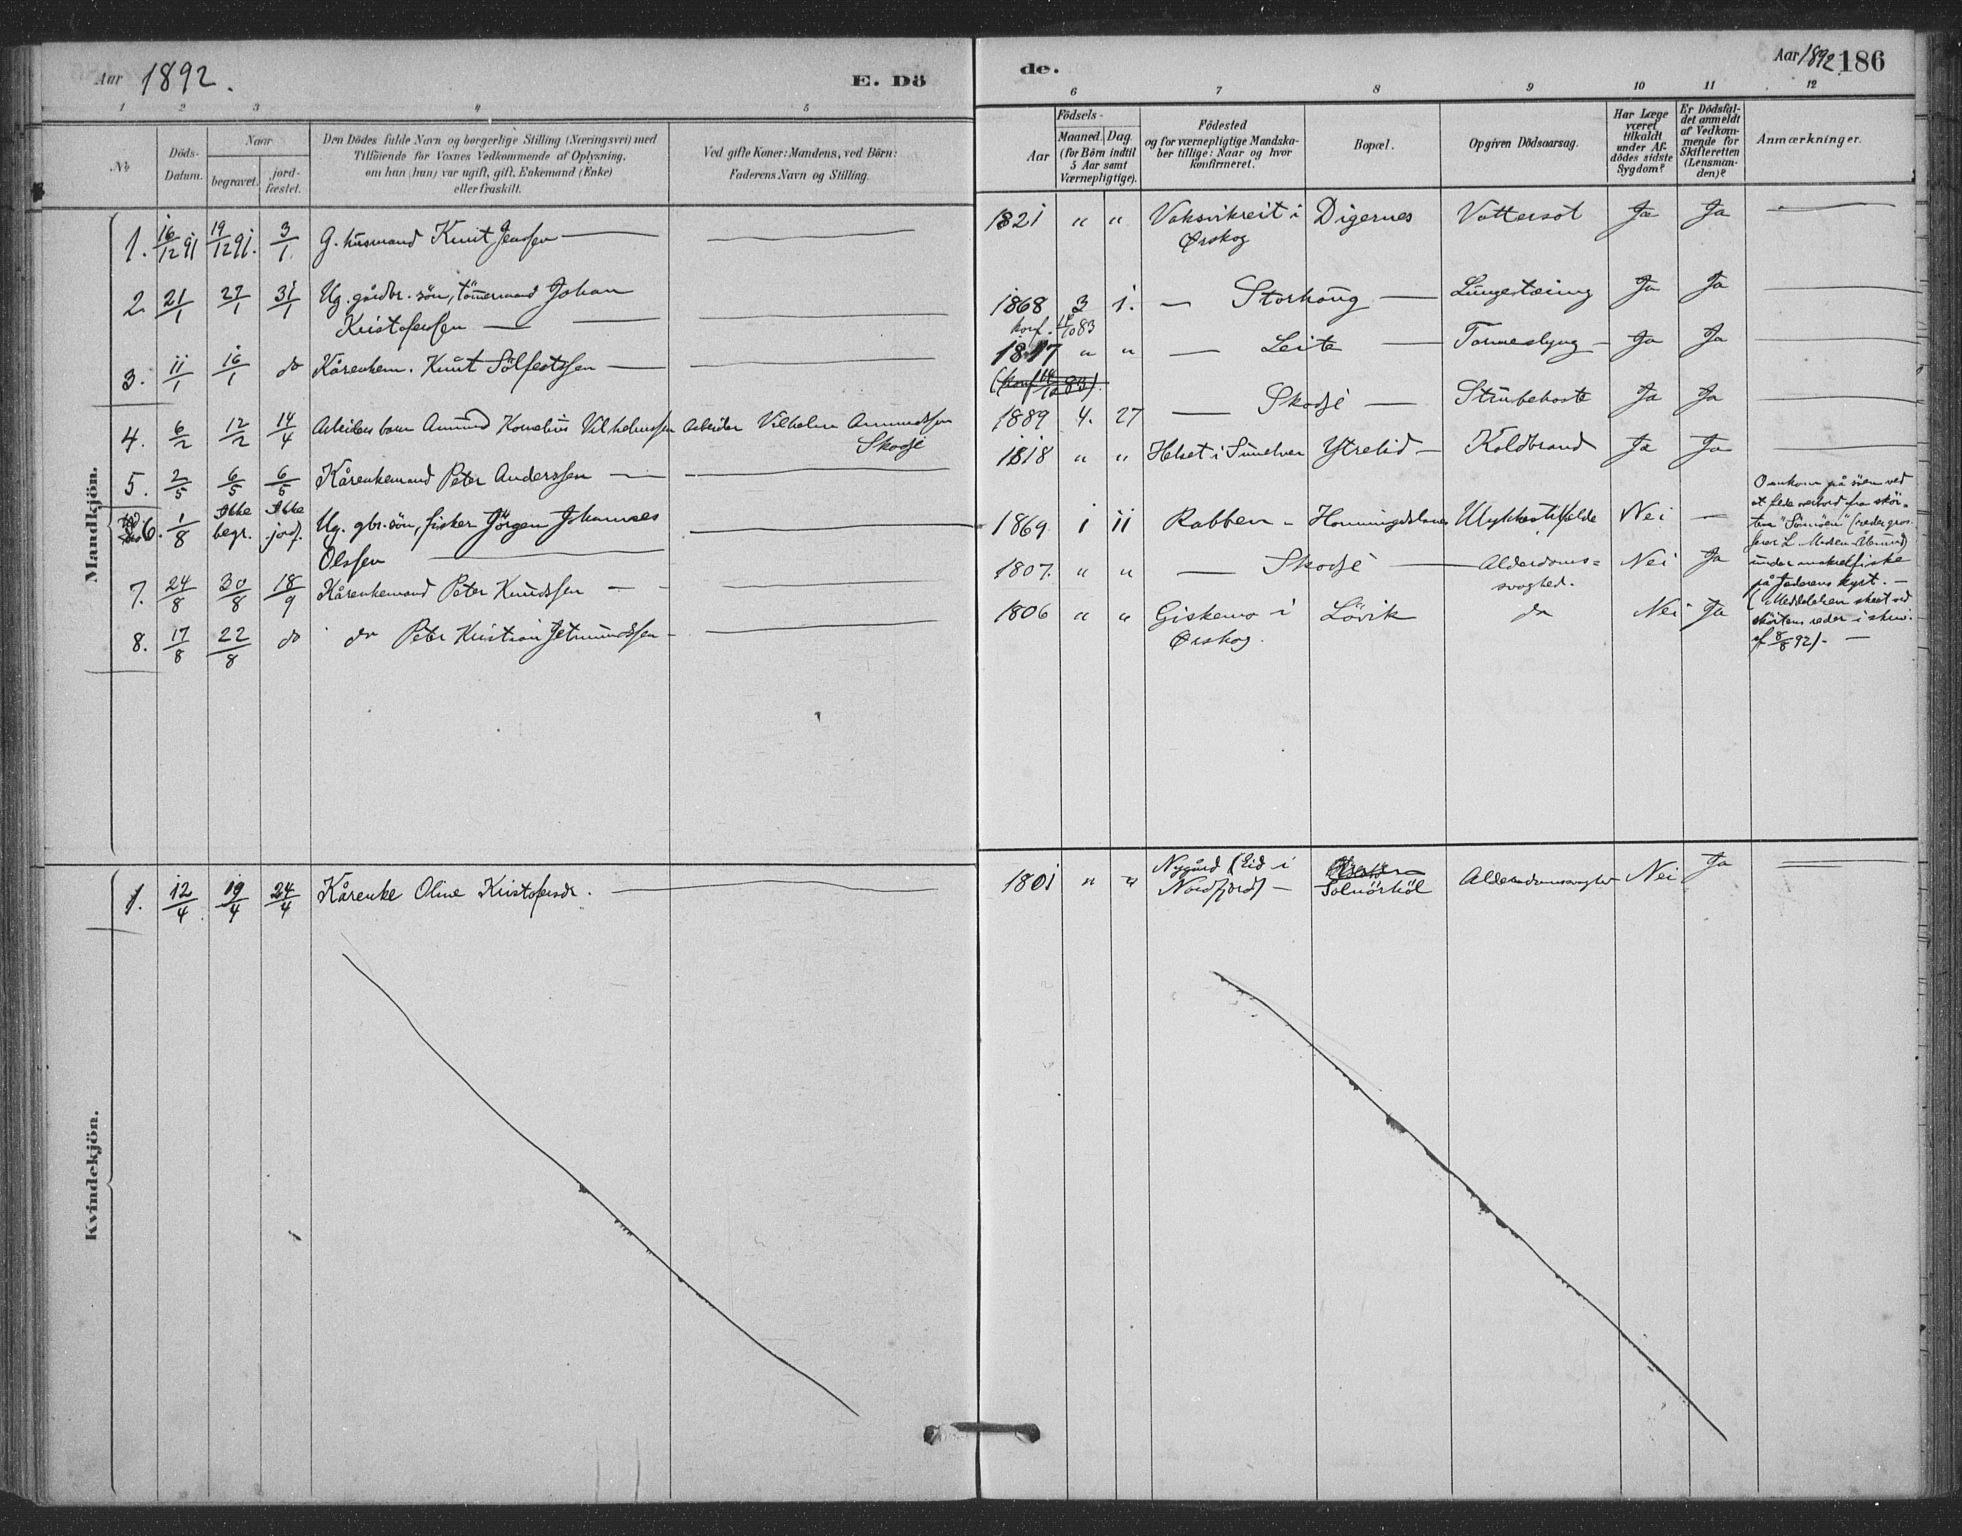 Aar 1892.
E. Dö
1 2 3 4 5
No
Döds-
Datum.
Naar
begravet.
jord-
fæstet.
Den Dödes fulde Navn og borgerlige Stilling (Næringsvei) med
Tilföiende for Voxnes Vedkommende af Oplysning,
om han (hun) var ugift, gift, Enkemand (Enke)
eller fraskilt.
Ved gifte Koner: Mandens, ved Börn:
Faderens Navn og Stilling.
Mandkjön.
1. 16/12 91 19/12 91. 3/1. G. husmand Knut Jenssen
2. 21/1 27/1 31/1 Ug. gårdbr. sön, tömmermand Johan
Kristofersen
3. 11/1 16/1 do Kårenkem. Knut Sölfestssen
4. 6/2 12/2 14/4 Arbeiders barn Amund Kornelius Vilhelmssen Arbeider Vilhelm Amundssen
Skodje
5. 2/5 6/5 6/5 Kårenkemand Peter Anderssen
6. 1/8 Ikke begr. Ikke jordf. Ug. gbr. sön, fisker Jörgen Johannes
Olssen
7. 24/8 30/8 18/9 Kårenkemand Peter Knudssen
8. 17/8 22/8 do do Peter Kristian Jetmundssen
Kvindekjön.
1. 12/4 19/4 24/4 Kårenke Oline Kristofersdr.
de.
Aar 1892 186
6 7 8 9 10 11 12
Födsels-
Aar
Maaned. Dag.
(for Börn indtil
5 Aar samt
Værnepligtige).
Födested
og for værnepligtige Mandska-
ber tillige: Naar og hvor
konfirmeret.
Bopæl.
Opgiven Dödsaarsag.
Har Læge
været
tilkaldt
under Af-
dödes sidste
Sygdom?
Er Dödsfal-
det anmeldt
af Vedkom-
mende for
Skifteretten
(Lensman-
den)?
Anmærkninger.
1821 " " Vaksvikreit i Digernes Vattersot Ja Ja
Ørskog
1868 3 1. Storhaug Lungetæring Ja Ja
konf. 83
1817 " " Leite Tarmeslyng Ja Ja
1889 4. 27 Skodje Strubehoste Ja Ja
1818 " " Helset i Sunelven Ytrelid Koldbrand Ja Ja
1869 1 11 Rabben Honningdalsnes Ulykkestilfelde Nei
Omkom på söen ved
at falde overbord fra sköi-
ten
under makrelfiske
på Jæderens kyst.
(Meddelelsen skeet ved
sköitens reder i skriv.
af 8/8 92).
1807. " " Skodje Alderdoms-
svaghed. Nei Ja
1806 " " Giskemo i Lövik do Nei Ja
Ørskog.
1801 " " Nygård (Eid i
Nordfjord) Solnörhöl Alderdomssvaghed Nei Ja